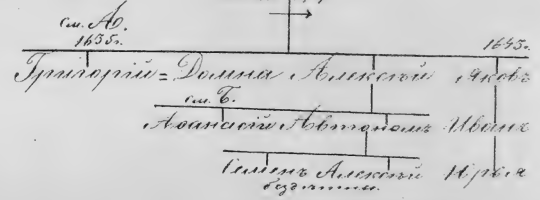 см. А.
1635г. 1645г.
Григорій = Домна Алексѣй Яковъ
см. Б.
Аѳанасій Автономъ Иванъ
Семенъ Алексѣй Илья
бездѣтны.